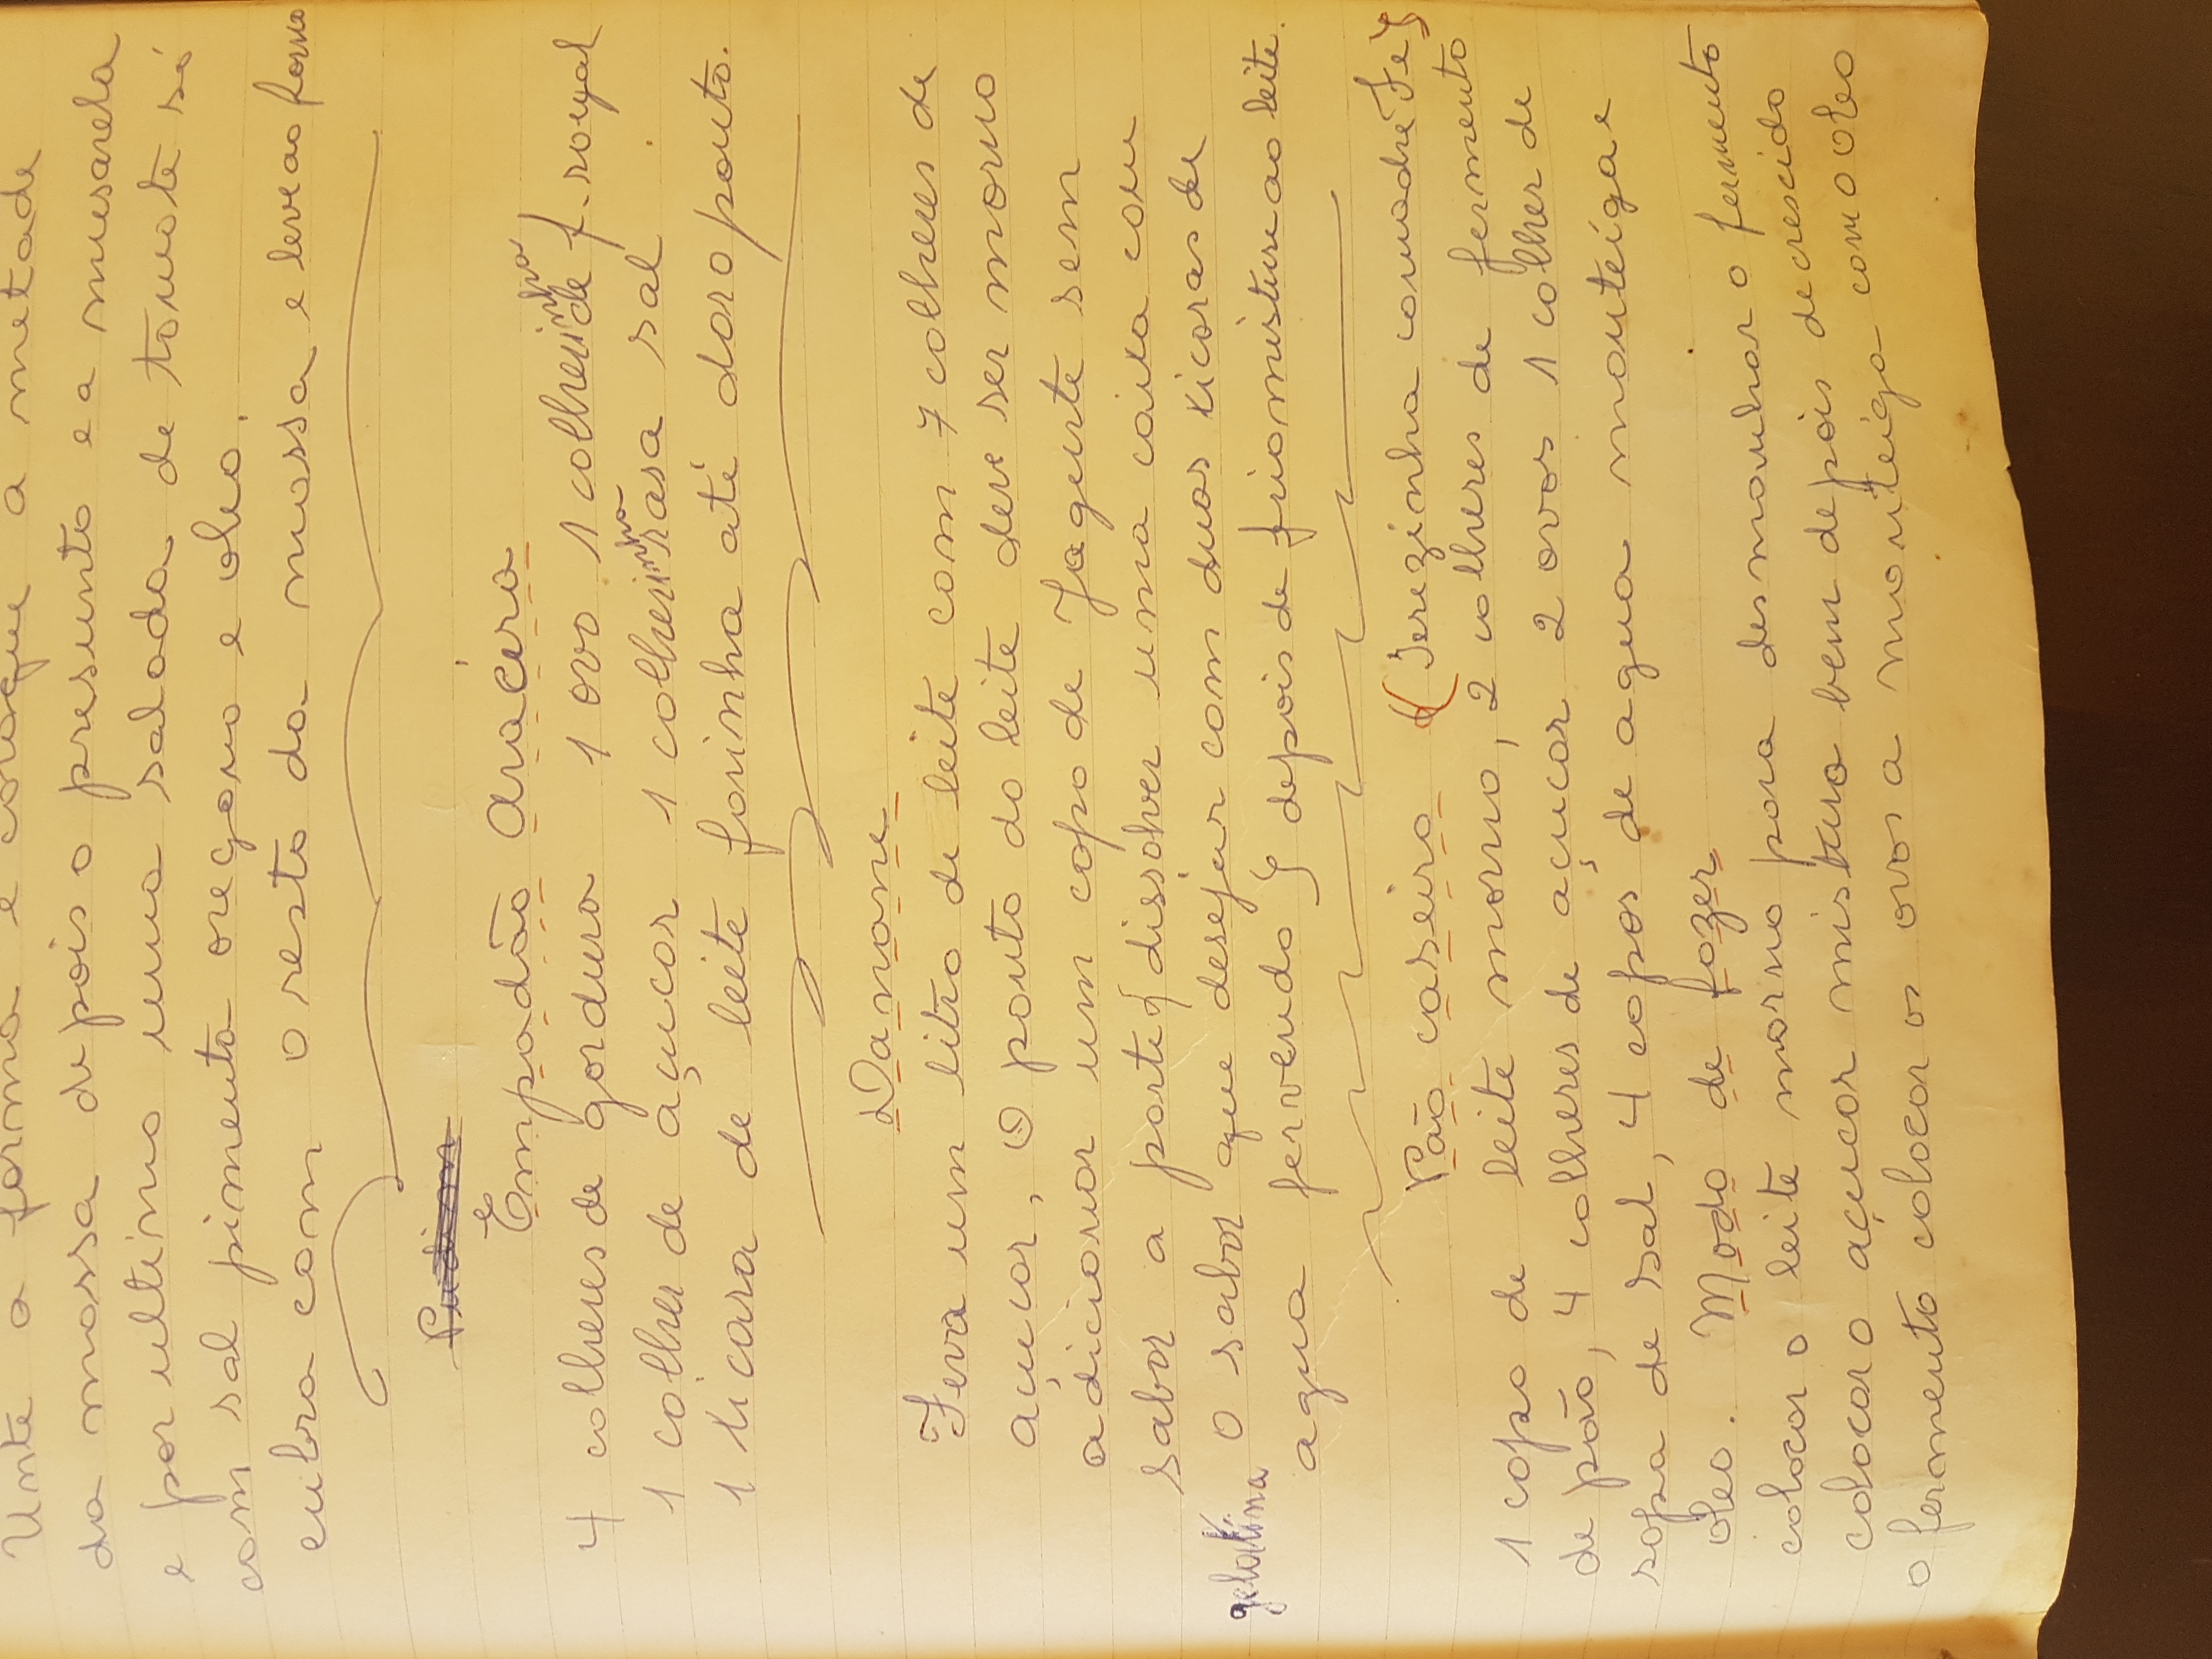 Unte a forma e coloque a metade
da massa depois o presunto e a musarela
e por ultimo uma salada de tomate só
com sal pimenta oregano e oleo.
cubra com o resto da massa e leve ao forno
Pudim
Empadão Aracéra
4 colheres de gordura 1 ovo 1 colherinha de f. royal
1 colher de açucar 1 colherinha rasa sal
1 xicara de leite farinha até dar o ponto.
Danone
Ferva um litro de leite com 7 colheres de
açucar, O ponto do leite deve ser morno
adicionar um copo de Jogurte sem
sabor a parte { dissolver uma caixa com
gelatina O sabor que desejar com duas xicaras de
agua fervendo } depois de frio misture ao leite.
Pão caseiro (Terezinha comadre Fe)
1 copo de leite morno, 2 colheres de fermento
de pão, 4 colheres de açucar 2 ovos 1 colher de
sopa de sal, 4 copos de agua manteiga e
oleo. Modo de fazer
colocar o leite morno para desmanchar o fermento
colocar o açucar mistura bem depois de crescido
o fermento colocar os ovos a manteiga com o oleo